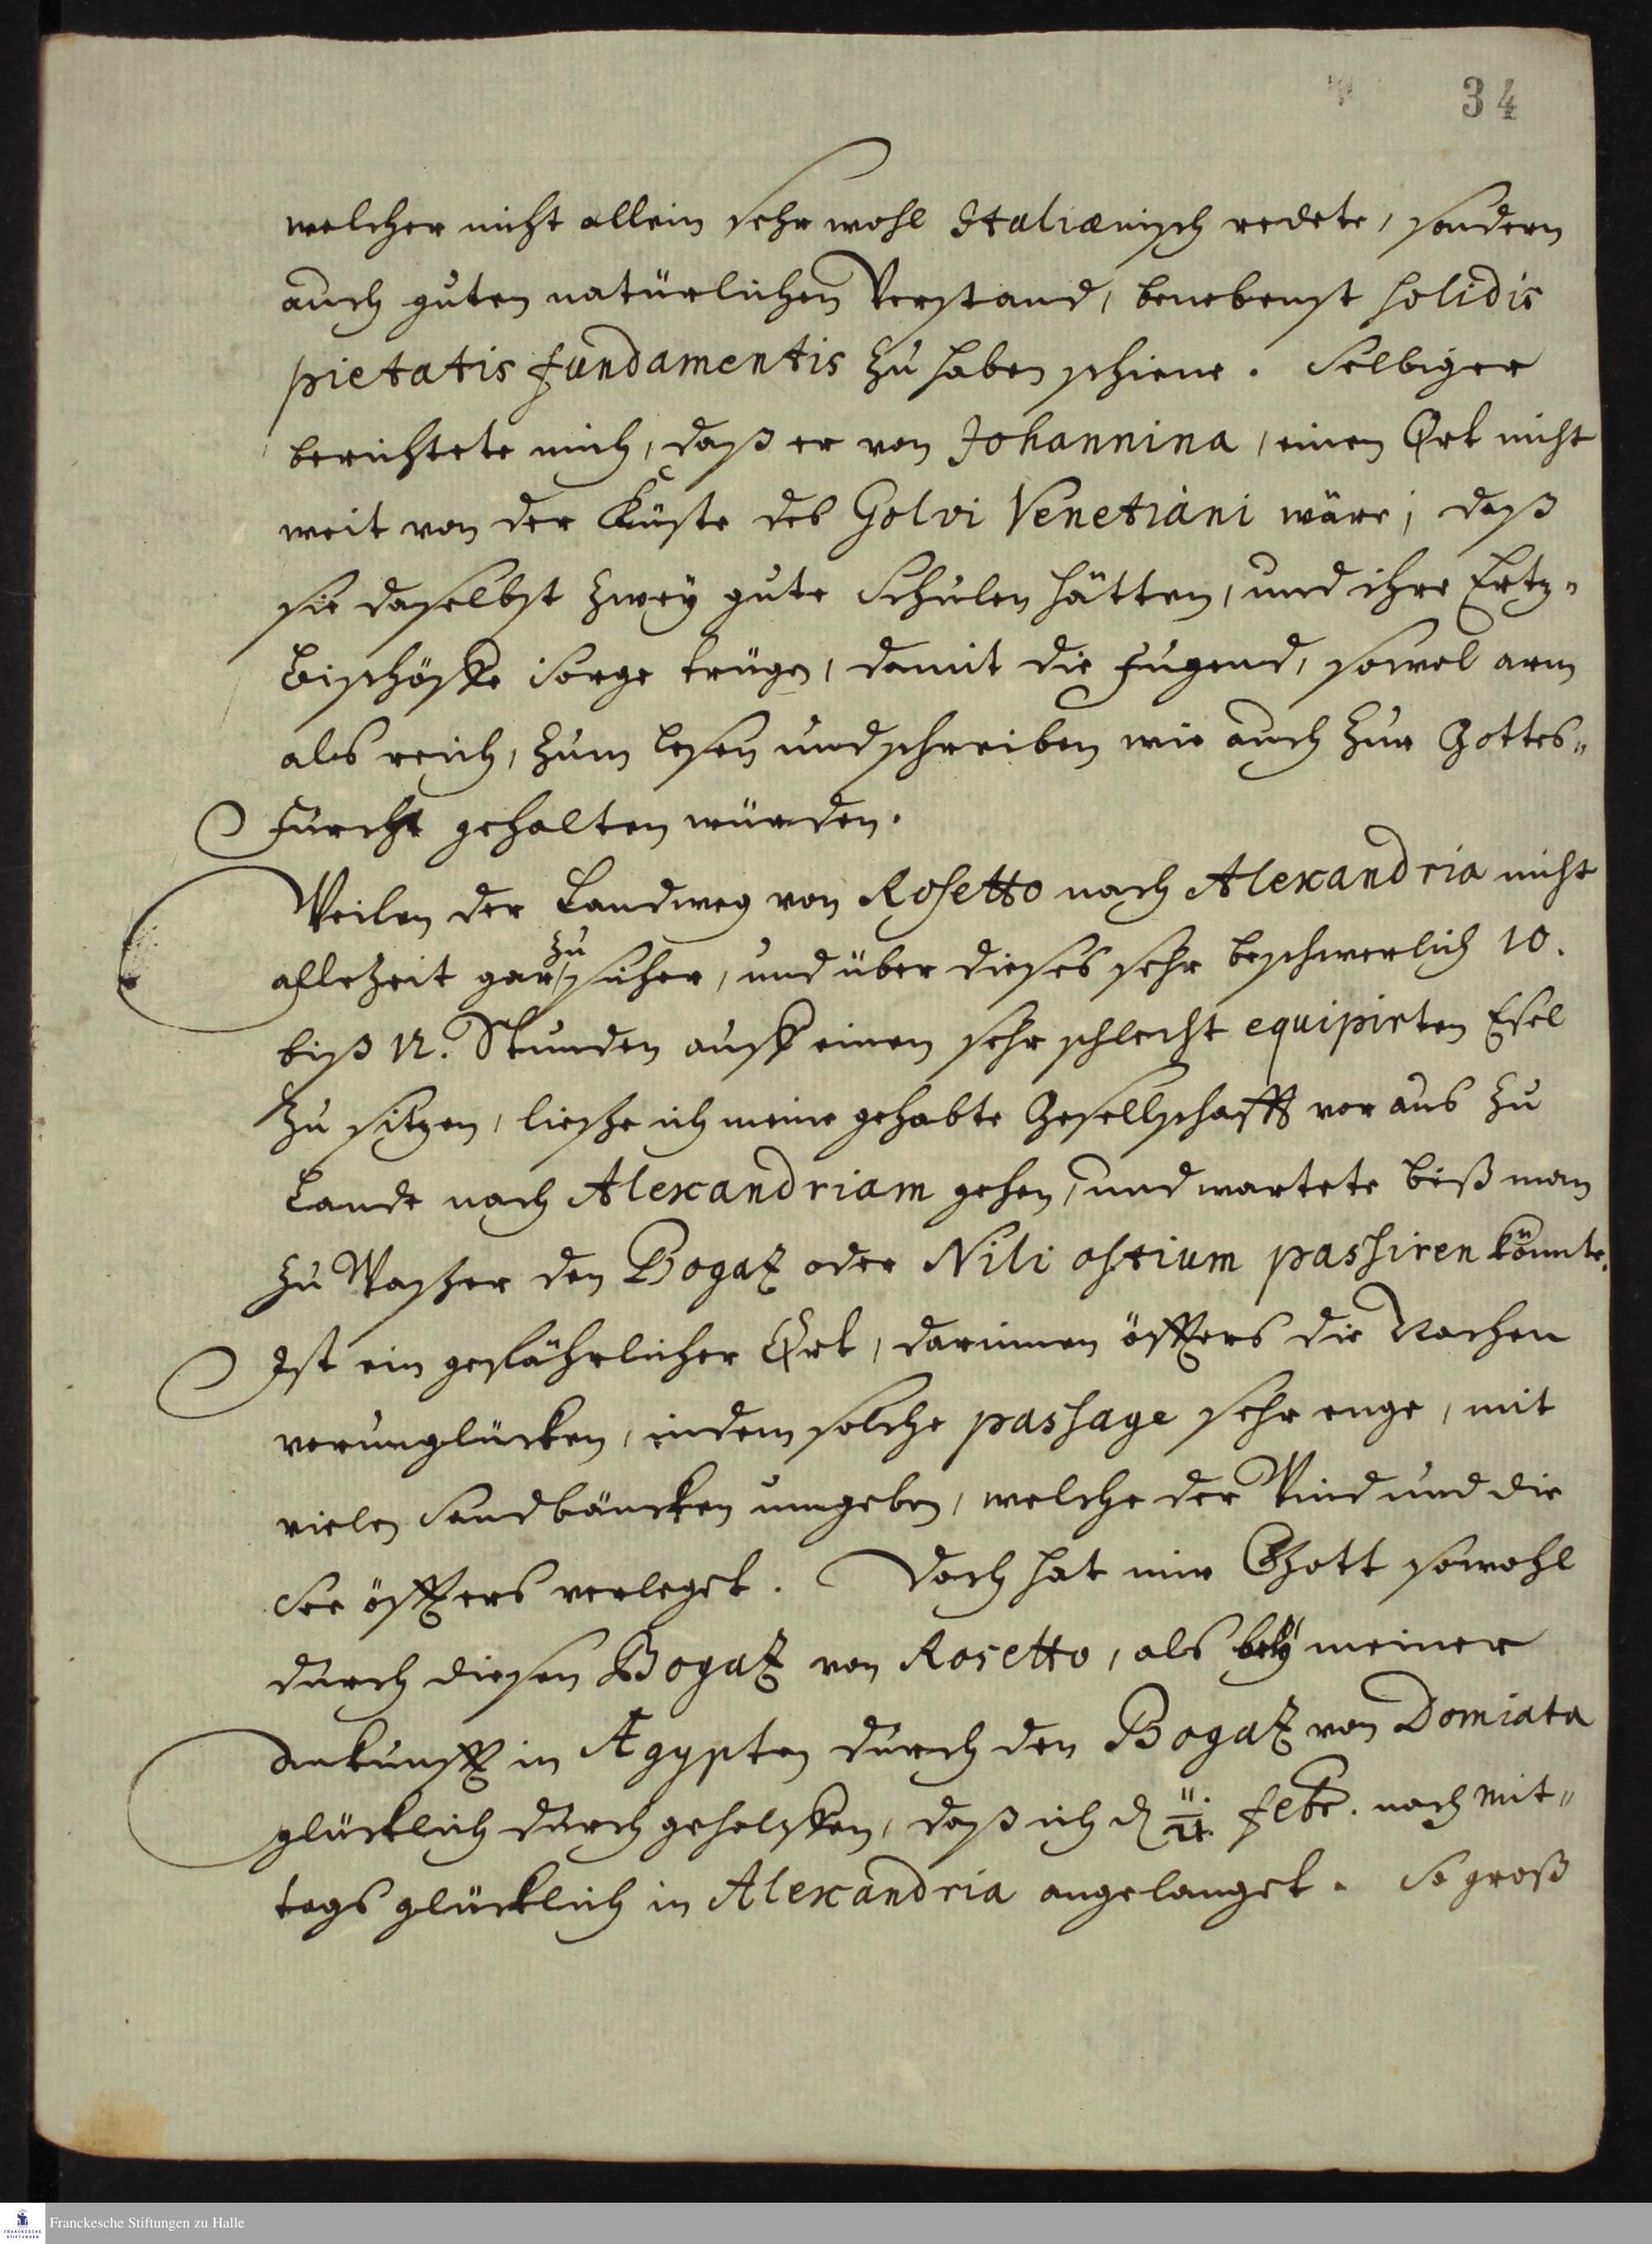 34
welcher nicht allein sehr wohl Italiænisch redete, sondern
auch guten natürlichen Verstand, benebenst solidis
pietatis fundamentis zu haben schiene. Selbiger
berichtete mich, daß er von Johannina, einen Ort nicht
weit von der Küste des Golvi Venetiani wäre; daß
sie daselbst zwey gute Schulen hätten, und ihre Ertz-
Bischöffe Sorge trügen, damit die Jugend, sowol arm
als reich, zum lesen und schreiben wie auch zur Gottes-
Furcht gehalten würden.
Weilen der Landweg von Rosetto nach Alexandria nicht
allezeit gar zu sicher, und über dieses sehr beschwerlich 10.
biß 12. Stunden auff einen sehr schlecht equipirten Esel
zu sitzen, liesze ich meine gehabte Gesellschafft voraus zu
Lande nach Alexandriam gehen, und wartete biß man
zu Waszer den Bogaz oder Nili ostium passiren könnte.
Ist ein gefährlicher Ort, darinnen öffters die Nachen
verunglücken, indem solche passage sehr enge, mit
vielen Sandbäncken umgeben, welche der Wind und die
See öffters verleget. Doch hat mir Gott sowohl
durch diesen Bogaz von Rosetto, als bey meiner
Ankunfft in Ægypten durch den Bogaz von Domiata
glücklich durch geholffen, daß ich d 11./21. Febr. nach Mit-
tags glücklich in Alexandria angelanget. So groß
FRANCKESCHE STIFTUNGEN
Franckesche Stiftungen zu Halle